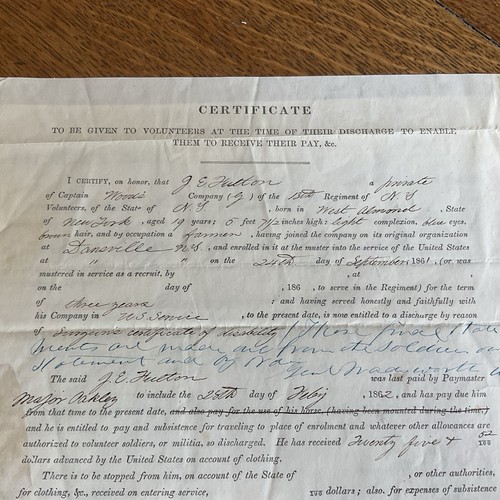 CERTIFICATE
TO BE GIVEN TO VOLUNTEERS AT THE TIME OF THEIR DISCHARGE TO ENABLE
THEM TO RECEIVE THEIR PAY, &c.
I CERTIFY, on honor, that J. E. Hulton a private
of Captain Wood's Company (G) of the Regiment of N. Y.
Volunteers, of the State of N. Y. , born in West Almond, State
of New York, aged 19 years; 5 feet 7 1/2 inches high; light complexion, blue eyes,
brown hair, and by occupation a farmer, having joined the company on its original organization
at Dansville N Y, and enrolled in it at the muster into the service of the United States
at " " on the 24th day of September, 1861, (or was
mustered in service as a recruit, by , at ,
on the day of , 186 , to serve in the Regiment) for the term
of three years ; and having served honestly and faithfully with
his Company in U S Service , to the present date, is now entitled to a discharge by reason
of certificate of disability (These Final
are made out from the Soldiers
Statement and of
Wadsworth
The said J. E. Hulton was last paid by Paymaster
Major Oakley to include the 28th day of Feby, 1862, and has pay due him
from that time to the present date, and also pay for the use of his horse, (having been mounted during the time,)
and he is entitled to pay and subsistence for traveling to place of enrolment and whatever other allowances are
authorized to volunteer soldiers, or militia, so discharged. He has received Twenty five &
dollars advanced by the United States on account of clothing.
There is to be stopped from him, on account of the State of , or other authorities,
for clothing, &c., received on entering service, 100 dollars; also, for expenses of subsistence